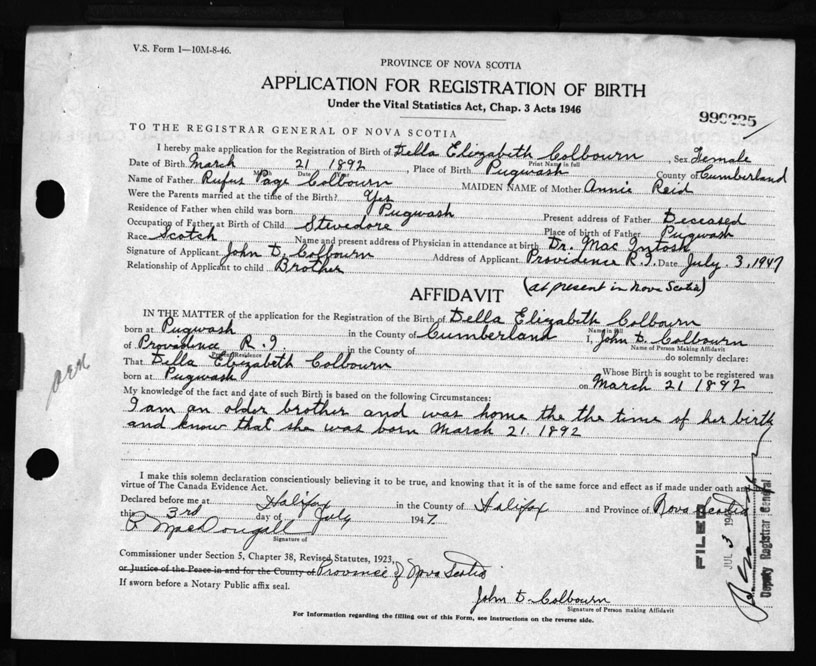 V.S. Form 1—10M-8-46.
PROVINCE OF NOVA SCOTIA
APPLICATION FOR REGISTRATION OF BIRTH
Under the Vital Statistics Act, Chap. 3 Acts 1946
TO THE REGISTRAR GENERAL OF NOVA SCOTIA
I hereby make application for the Registration of Birth of Della Elizabeth Colbourn, Sex Female
Print Name in full
Date of Birth March 21 1892, Place of Birth Pugwash County of Cumberland
Name of Father Rufus Page Colbourn MAIDEN NAME of Mother Annie Reid
Were the Parents married at the time of the Birth? Yes
Residence of Father when child was born Pugwash Present address of Father Deceased
Occupation of Father at Birth of Child Stevedore Place of birth of Father Pugwash
Race Scotch Name and present address of Physician in attendance at birth Dr. Mac Intosh
Signature of Applicant John D. Colbourn Address of Applicant Providence R.I. Date July. 3, 1947
Relationship of Applicant to child Brother (at present in Nova Scotia)
AFFIDAVIT
IN THE MATTER of the application for the Registration of the Birth of Della Elizabeth Colbourn
Name in full
born at Pugwash in the County of Cumberland I, John D. Colbourn
Name of Person Making Affidavit
of Providence R.I. in the County of do solemnly declare:
Present Residence
That Della Elizabeth Colbourn Whose Birth is sought to be registered was
born at Pugwash on March 21 1892
My knowledge of the fact and date of such Birth is based on the following Circumstances:
I am an older brother and was home the the time of her birth
and know that she was born March 21. 1892
I make this solemn declaration conscientiously believing it to be true, and knowing that it is of the same force and effect as if made under oath and
virtue of The Canada Evidence Act.
Declared before me at Halifax in the County of Halifax and Province of Nova Scotia
this 3rd day of July 1947.
R MacDougall
Signature of
Commissioner under Section 5, Chapter 38, Revised Statutes, 1923,
or Justice of the Peace in and for the County of Province of Nova Scotia
If sworn before a Notary Public affix seal.
John D. Colbourn
Signature of Person making Affidavit
For Information regarding the filling out of this Form, see instructions on the reverse side.
FILED
JUL 3
Deputy Registrar General